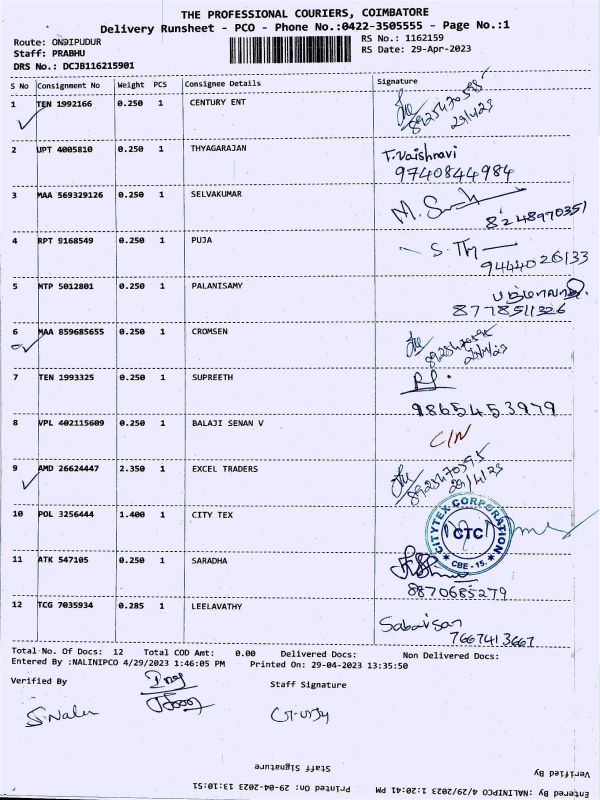 THE PROFESSIONAL COURIERS, COIMBATORE
Delivery Runsheet - PCO - Phone No.:0422-3505555 - Page No.:1
Route: ONDIPUDUR
RS No.: 1162159
Staff: PRABHU
RS Date: 29-Apr-2023
DRS No.: DCJB116215901
S No Consignment No Weight PCS Consignee Details Signature
1 TEN 1992166 0.250 1 CENTURY ENT
29/4/23
2 UPT 4005810 0.250 1 THYAGARAJAN T. Vaishnavi
9740844984
3 MAA 569329126 0.250 1 SELVAKUMAR
8248970351
4 RPT 9168549 0.250 1 PUJA
9444026133
5 MTP 5012801 0.250 1 PALANISAMY
8778511326
6 MAA 859685655 0.250 1 CROMSEN
29/4/23
7 TEN 1993325 0.250 1 SUPREETH
9865453979
8 VPL 402115609 0.250 1 BALAJI SENAN V
C/N
9 AMD 26624447 2.350 1 EXCEL TRADERS
29/4/23
10 POL 3256444 1.400 1 CITY TEX
CITYTEX CORPORATION
CTC
CBE - 15.
11 ATK 547105 0.250 1 SARADHA
8870685279
12 TCG 7035934 0.285 1 LEELAVATHY
7667413667
Total No. Of Docs: 12 Total COD Amt: 0.00 Delivered Docs: Non Delivered Docs:
Entered By :NALINIPCO 4/29/2023 1:46:05 PM Printed On: 29-04-2023 13:35:50
Verified By
Staff Signature
Staff Signature
Verified By
Printed On: 29-04-2023 13:10:51
Entered By :NALINIPCO 4/29/2023 1:20:41 PM